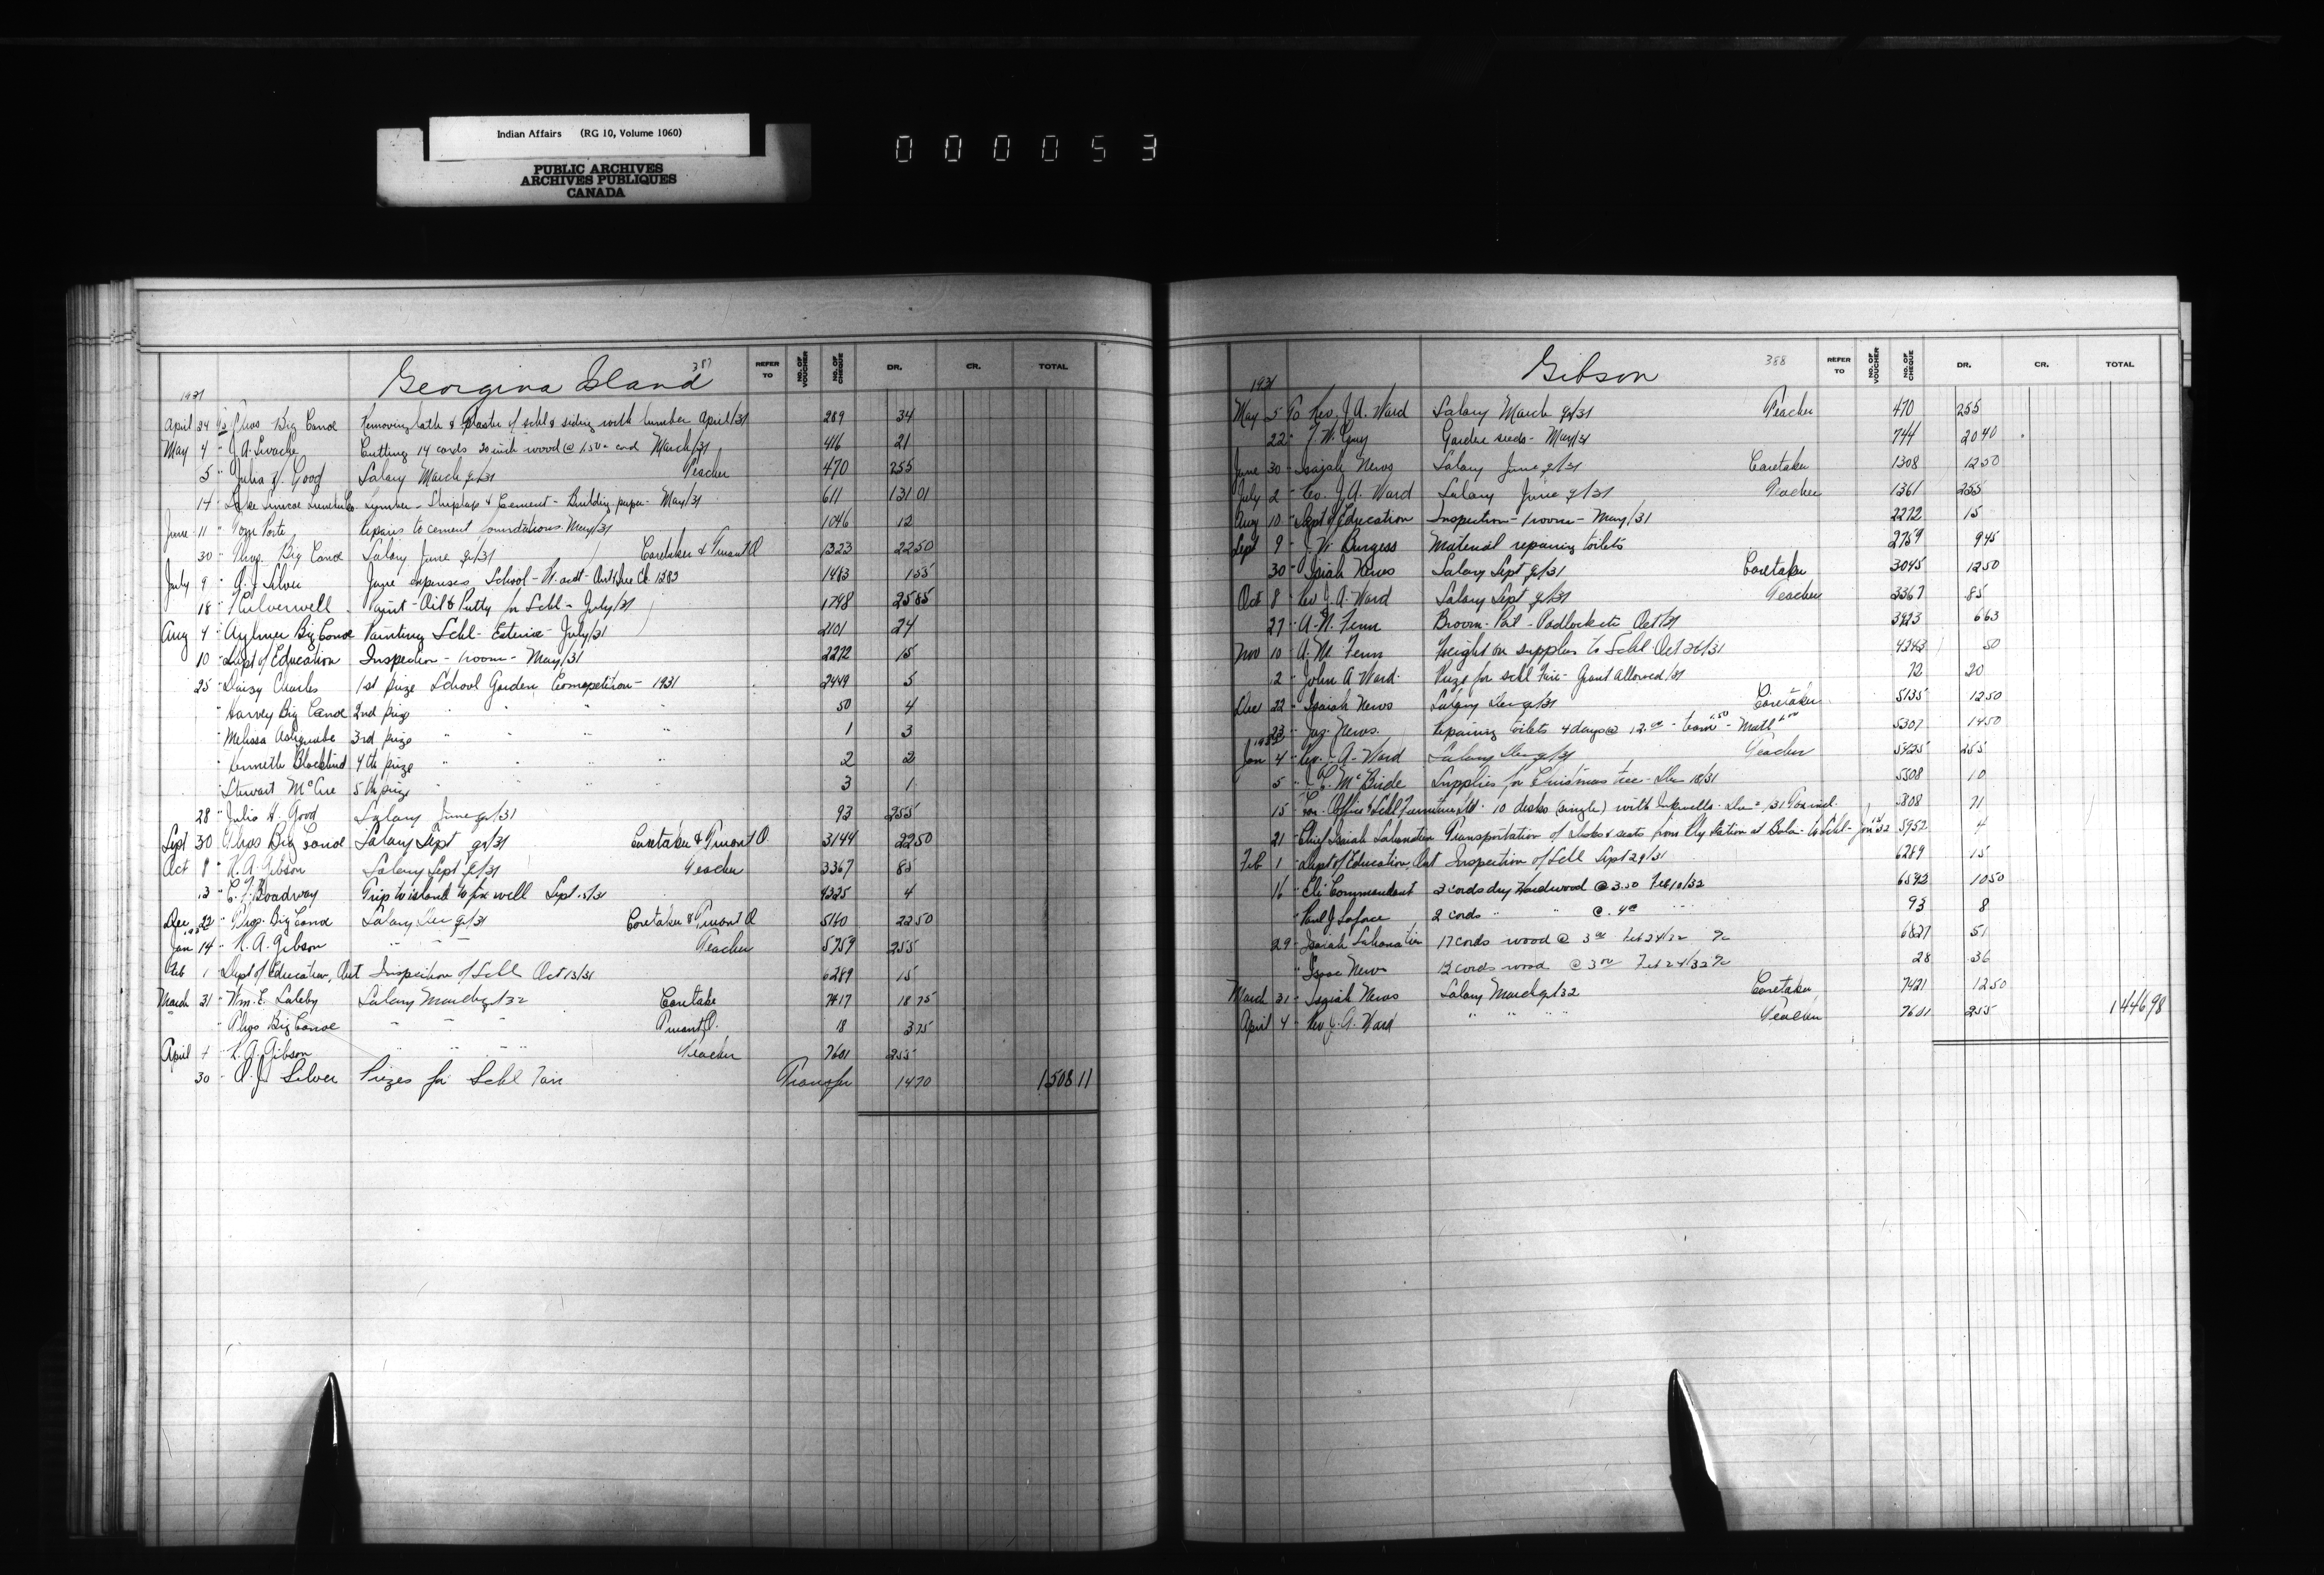 Indian Affairs (RG 10, Volume 1060)
PUBLIC ARCHIVES
ARCHIVES PUBLIQUES
CANADA
000053
Georgina Island 387
REFER TO NO. OF VOUCHER NO. OF CHEQUE DR. CR. TOTAL
1931
April 24 To Thos Big Canoe Removing lath & plaster of schl & siding with lumber April/31 289 34
May 4 " J. A. Cutting 14 cords 20 inch wood @ 1.50 cord March/31 416 21
5 " Julia H. Good Salary March qr/31 Teacher 470 255
14 " Lake Simcoe Lumber Co. Lumber - Shiplap & Cement - Building paper - May/31 611 131 01
June 11 " Porte Repairs to cement foundations May/31 1046 12
30 " Thos. Big Canoe Salary June qr/31 Caretaker & Truant O 1323 22 50
July 9 " Silver June expenses School - 1483 1 55
18 " Culverwell Paint - Oil & Putty for Schl - July/31 1748 25 85
Aug 4 " Aylmer Big Canoe Painting Schl - Exterior - July/31 2101 24
10 " Dept of Education Inspection - 1 room - May/31 2272 15
25 " Daisy Charles 1st prize School Garden Competition - 1931 2449 5
" Harvey Big Canoe 2nd prize " " " " 50 4
" Melissa 3rd prize " " " " 1 3
" Kenneth Blackbird 4th prize " " " " 2 2
" Stewart McCue 5th prize " " " " 3 1
28 " Julia H. Good Salary June qr/31 93 255
Sept 30 " Thos Big Canoe Salary Sept qr/31 Caretaker & Truant O. 3144 22 50
Oct 8 " Gibson Salary Sept qr/31 Teacher 3367 85
13 " Boadway Trip to island to fix well Sept /31 4325 4
Dec 22 " Thos. Big Canoe Salary Dec qr/31 Caretaker & Truant O 5160 22 50
Jan 14 " A. Gibson " " " Teacher 5759 255
Feb 1 " Dept of Education, Ont Inspection of Schl Oct 13/31 6289 15
March 31 " Wm. E. Salary March qr/32 Caretake 7417 18 75
" Thos Big Canoe " " " Truant O. 18 3 75
April 4 " A. Gibson " " " " Teacher 7601 255
30 " Silver Prizes for Schl Fair Transfer 14 70 1508 11
Gibson 388
REFER TO NO. OF VOUCHER NO. OF CHEQUE DR. CR. TOTAL
1931
May 5 To Rev. J. A. Ward Salary March qr/31 Teacher 470 255
22 " Guy Garden seeds - May/31 744 20 40
June 30 " Isaiah News Salary June qr/31 Caretaker 1308 12 50
July 2 " Rev. J. A. Ward Salary June qr/31 Teacher 1361 255
Aug 10 " Dept of Education Inspection - 1 room - May/31 2272 15
Sept 9 " J. W. Burgess Material repairing toilets 2759 9 45
30 " Isaiah News Salary Sept qr/31 Caretaker 3045 12 50
Oct 8 " Rev J. A. Ward Salary Sept qr/31 Teacher 3367 85
27 " Fenn Broom - Pail - Padlock etc Oct/31 3923 6 63
Nov 10 " A. M. Fenn Freight on supplies to Schl Oct 26/31 4343 50
12 " John A Ward Prize for schl Fair - Grant allowed/31 72 20
Dec 22 " Isaiah News Salary Dec qr/31 Caretaker 5135 12 50
23 " Jas. News Repairing toilets 4 days @ - team - Matl 5307 14 50
1932
Jan 4 " Rev. J. A. Ward Salary Dec qr/31 Teacher 5425 255
5 " McBride Supplies for Christmas tree - Dec 18/31 5508 10
15 " Office & Schl Furniture Ltd. 10 desks (single) with Inkwells - Dec /31 Tax incl. 5808 71
21 " Chief Isaiah Sahanatien Transportation of desks & seats from Rly Station at Bala - to Schl - Jan /32 5952 4
Feb 1 " Dept of Education, Ont Inspection of Schl Sept 29/31 6289 15
16 " Eli Commandant 3 cords dry Hardwood @ 3.50 Feb 10/32 6542 10 50
" Paul J Laforce 2 cords " " @ 4 " " 93 8
29 " Isaiah Sahanatien 17 cords wood @ 3 Feb 24/32 6827 51
" Isaac News 12 cords wood @ 3 Feb 24/32 28 36
March 31 " Isaiah News Salary March qr/32 Caretaker 7421 12 50
April 4 " Rev J. A. Ward " " " " Teacher 7601 255 1446 98